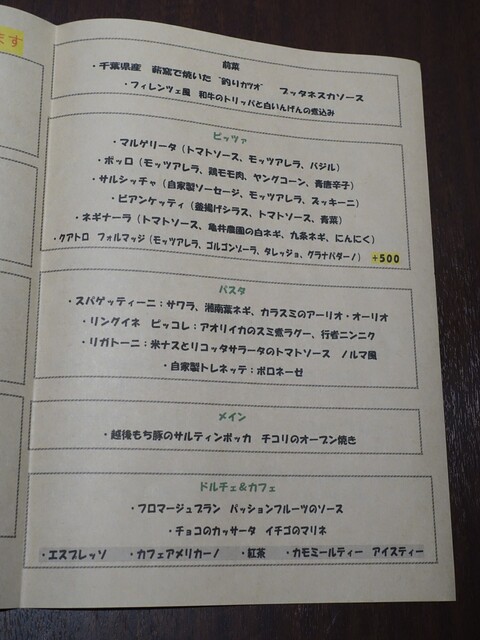 ます
前菜
・千葉県産 薪窯で焼いた "釣りカツオ" プッタネスカソース
・フィレンツェ風 和牛のトリッパと白いんげんの煮込み
ピッツァ
・マルゲリータ（トマトソース、モッツアレラ、バジル）
・ポッロ（モッツアレラ、鶏モモ肉、ヤングコーン、青唐辛子）
・サルシッチャ（自家製ソーセージ、モッツアレラ、ズッキーニ）
・ビアンケッティ（釜揚げシラス、トマトソース、青菜）
・ネギナーラ（トマトソース、亀井農園の白ネギ、九条ネギ、にんにく）
・クアトロ フォルマッジ（モッツアレラ、ゴルゴンゾーラ、タレッジョ、グラナパダーノ） +500
パスタ
・スパゲッティーニ：サワラ、湘南葉ネギ、カラスミのアーリオ・オーリオ
・リングイネ ピッコレ：アオリイカのスミ煮ラグー、行者ニンニク
・リガトーニ：米ナスとリコッタサラータのトマトソース ノルマ風
・自家製トレネッテ：ボロネーゼ
メイン
・越後もち豚のサルティンボッカ チコリのオーブン焼き
ドルチェ&カフェ
・フロマージュブラン パッションフルーツのソース
・チョコのカッサータ イチゴのマリネ
・エスプレッソ ・カフェアメリカーノ ・紅茶 ・カモミールティー アイスティー